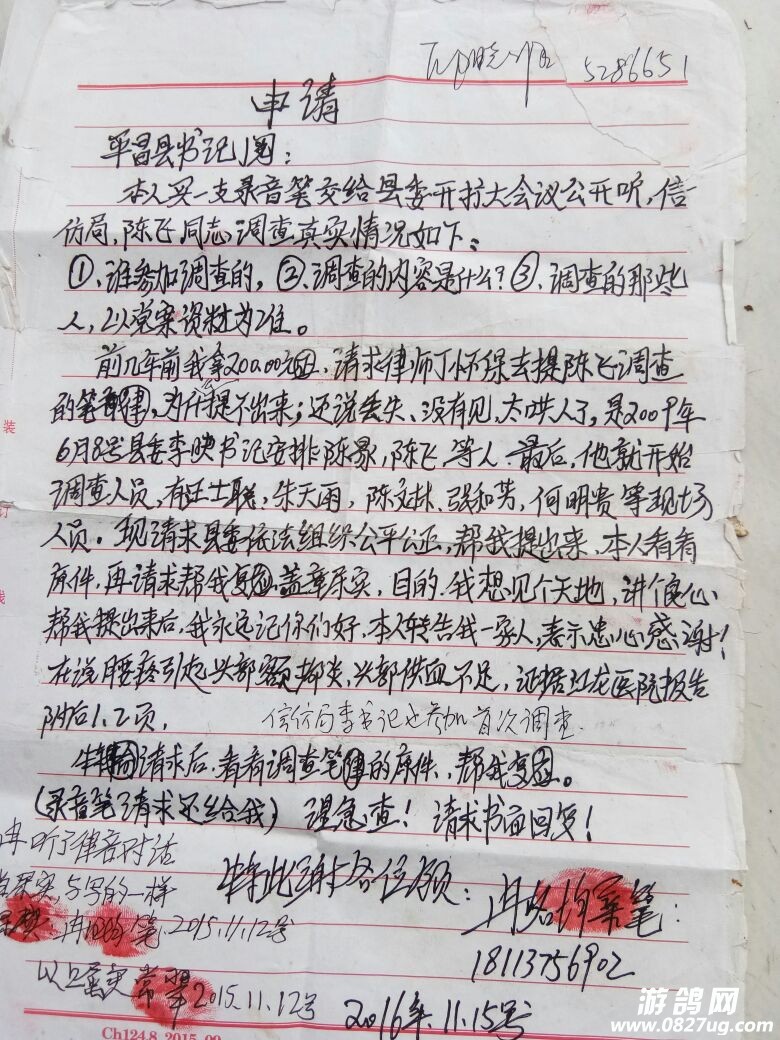 5286651
申请
平昌县书记
本人买一支录音笔交给县委开扩大会议公开听,信
仿局,陈飞同志调查真实情况如下:
①、谁参加调查的,②、调查的内容是什么?③、调查的那些
人,以党案资料为准。
前几年前我拿20000元,请求律师丁怀保去提陈飞调查
的笔,为什提不出来;还说丢失、没有见,太哄人了,是2009年
6月8号县委李映书记安排陈,陈飞,等人.最后,他就开始
调查人员,有汪士聪,朱天雨,陈文林,张和芳,何明贵等现场
人员。现请求县委依法组织公平公正,帮我提出来,本人看看
原件,再请求帮我复盖章乐实,目的.我想见个天地,讲个良心
帮我提出来后,我永远记你们好,本人转告我一家人,表示忠心感谢!
在说腰疼引起头部额,头部供血不足,证据红龙医院报告
附后1.2项.
信仿局李书记也参加首次调查
请求后,看看调查笔的原件、帮我复。
(录音笔请求还给我) 谨急查!请求书面回复!
听了律音对话
实与写的一样
笔.2015.11.12号
以上属实
2015.11.12号
特此谢各位领:
18113756902
2016年.11.15号
Ch124.8 2015.09
装
订
线
游鸽网
www.0827ug.com